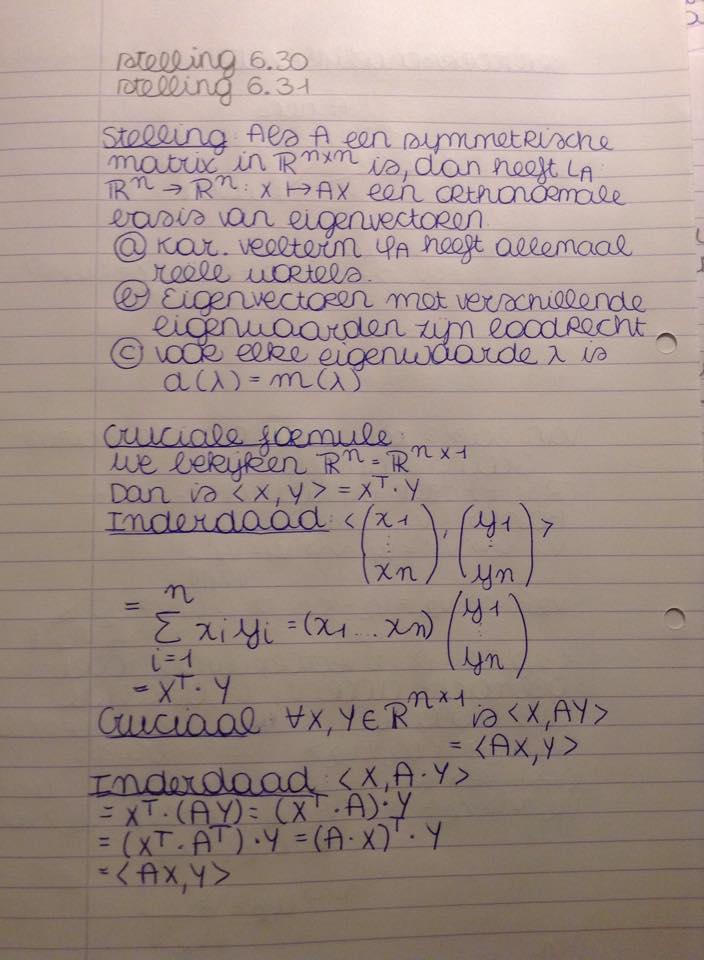 stelling 6.30
stelling 6.31
Stelling: Als A een symmetrische
matrix in ℝⁿˣⁿ is, dan heeft L_A:
ℝⁿ → ℝⁿ: X ↦ AX een orthonormale
basis van eigenvectoren
ⓐ Kar. veelterm φ_A heeft allemaal
reële wortels.
ⓑ Eigenvectoren met verschillende
eigenwaarden zijn loodrecht
ⓒ voor elke eigenwaarde λ is
d(λ) = m(λ)
Cruciale formule:
We bekijken ℝⁿ = ℝⁿˣ¹
Dan is <X,Y> = Xᵀ·Y
Inderdaad: <(x1 ⋮ xn), (y1 ⋮ yn)>
= n∑i=1 xi yi = (x1 ... xn) (y1 ⋮ yn)
= Xᵀ·Y
Cruciaal: ∀X,Y ∈ ℝⁿˣ¹ is <X,AY>
= <AX,Y>
Inderdaad: <X,A·Y>
= Xᵀ·(AY) = (Xᵀ·A)·Y
= (Xᵀ·Aᵀ)·Y = (A·X)ᵀ·Y
= <AX,Y>